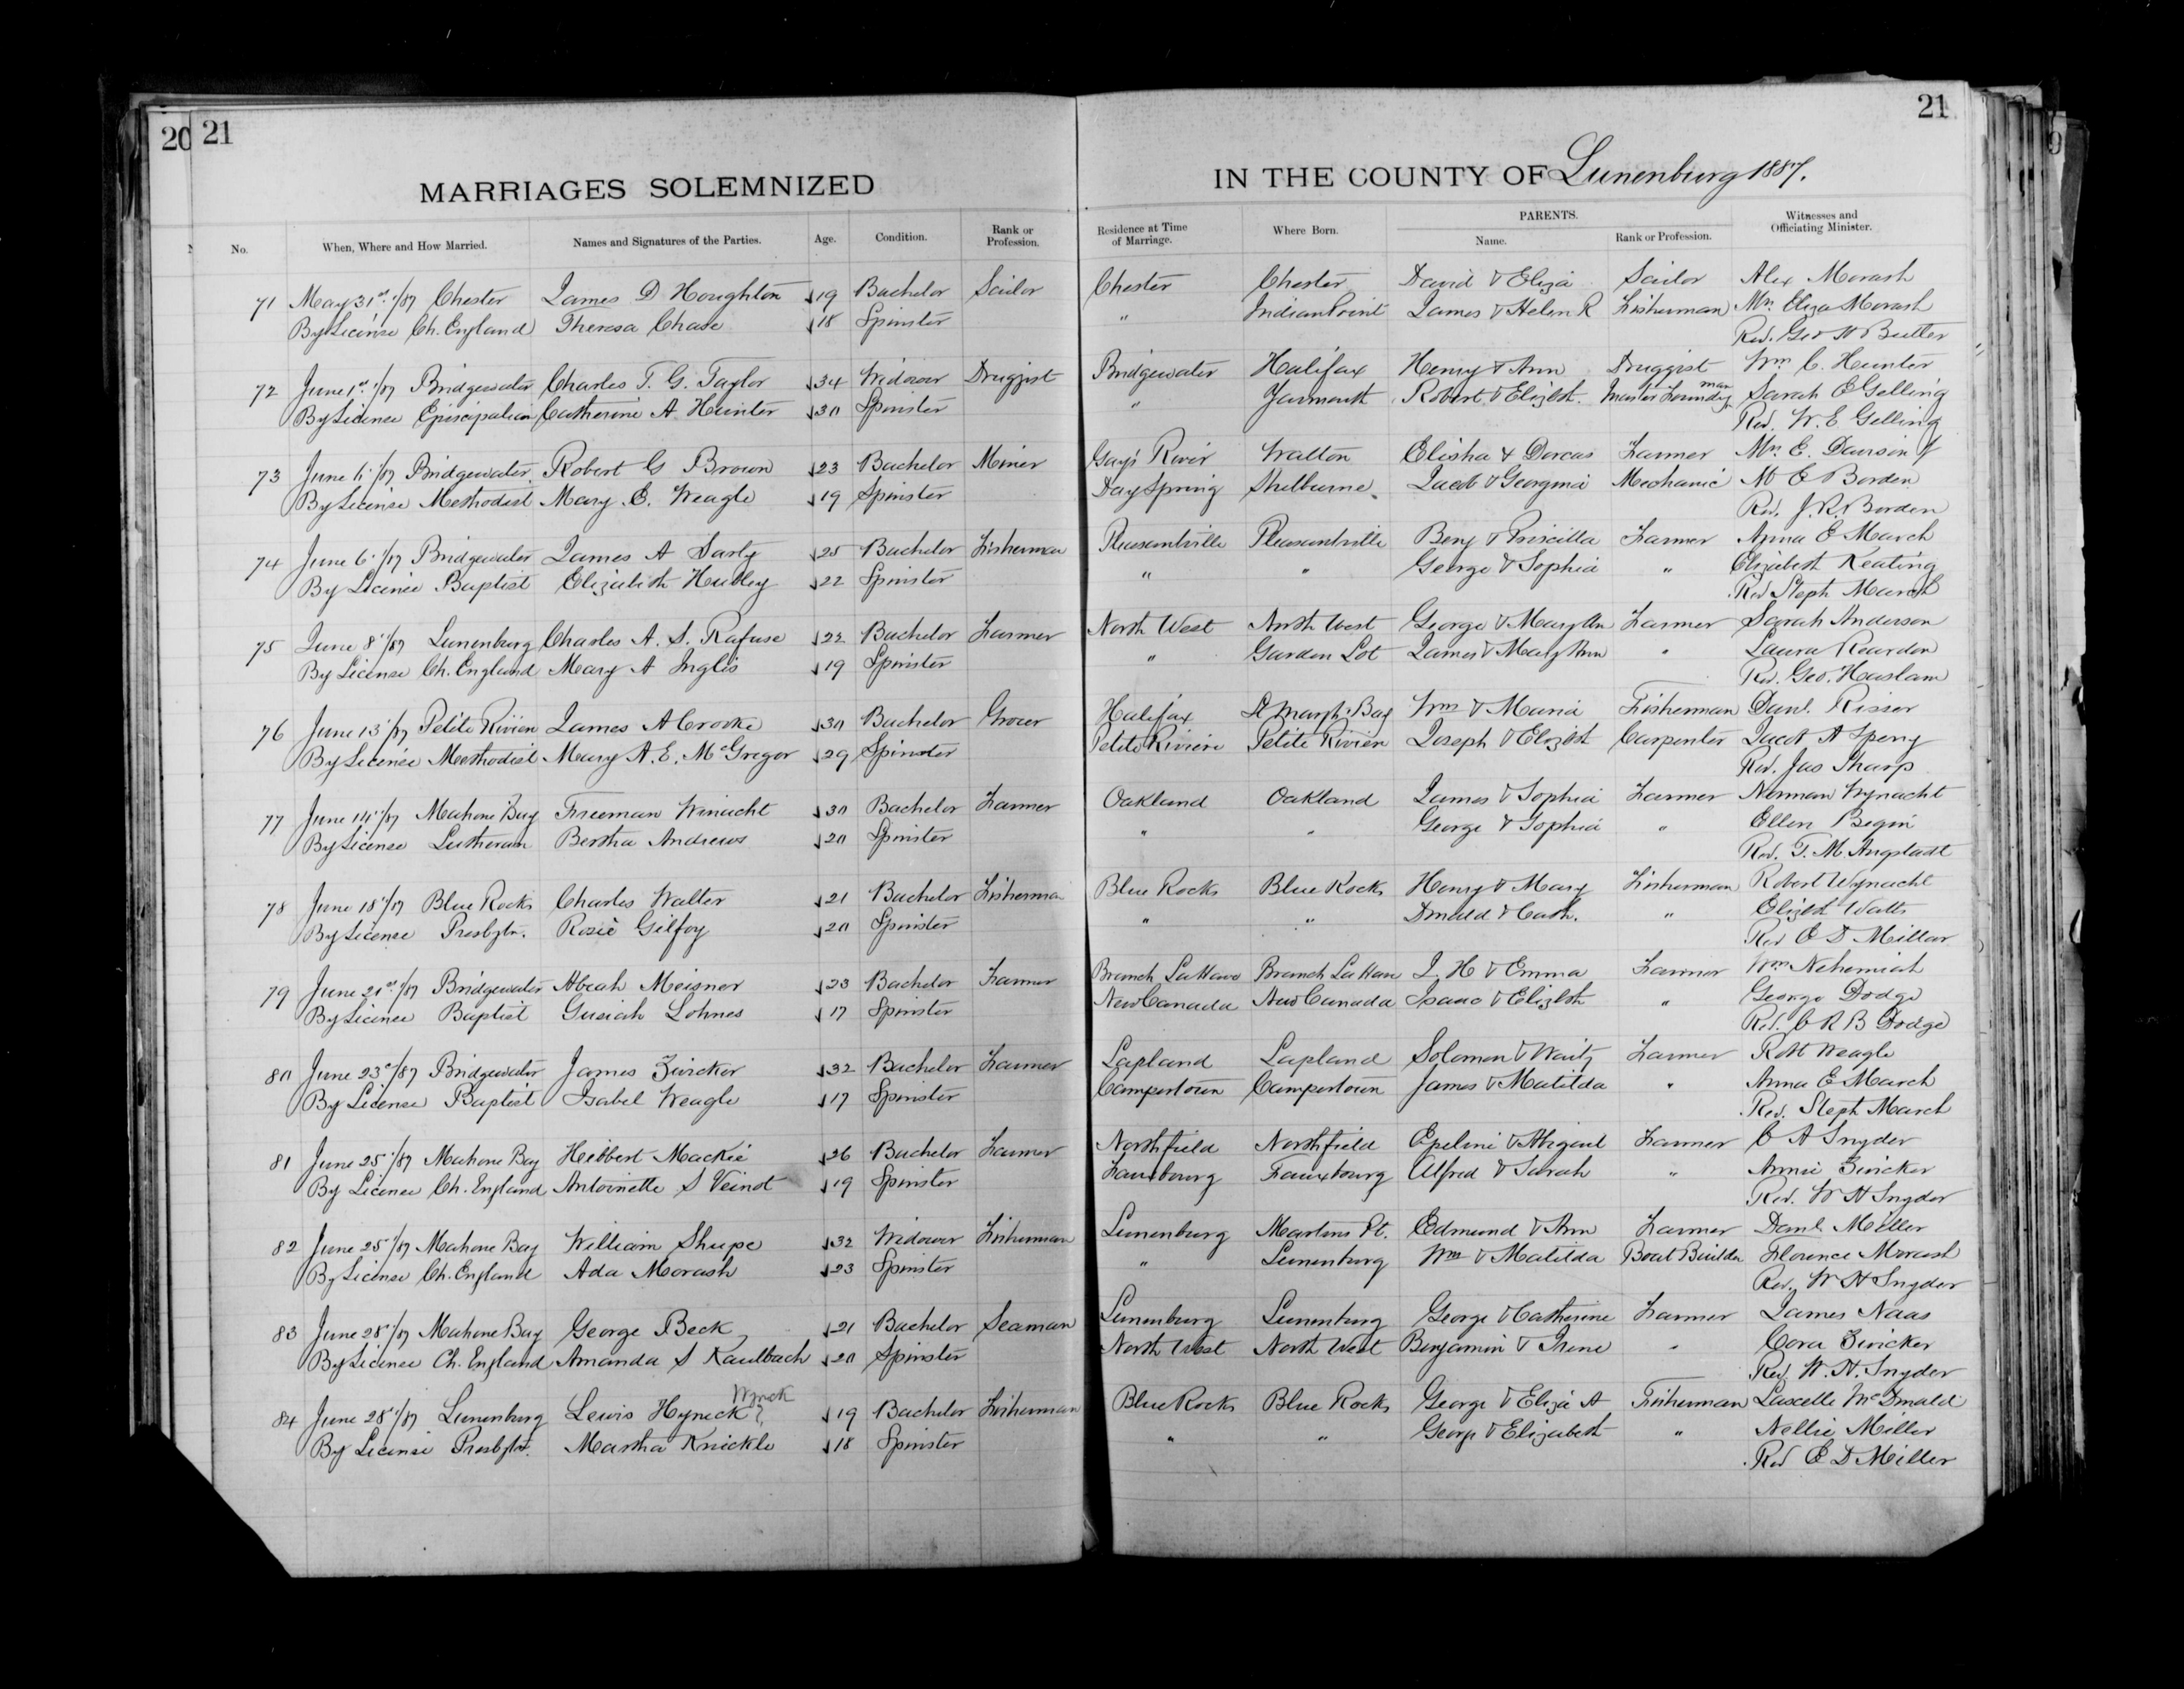 20 21
21
MARRIAGES SOLEMNIZED IN THE COUNTY OF Lunenburg 1887.
No. When, Where and How Married. Names and Signatures of the Parties. Age. Condition. Rank or Profession. Residence at Time of Marriage. Where Born. PARENTS. Name. Rank or Profession. Witnesses and Officiating Minister.
71 May 31st /87 Chester James D Houghton 19 Bachelor Sailor Chester Chester David & Eliza Sailor Alex Morash
By License Ch. England Theresa Chase 18 Spinster " Indian Point James & Helen R Fisherman Mrs Eliza Morash
Rev. Geo H Butler
72 June 1st /87 Bridgewater Charles T. G. Taylor 34 Widower Druggist Bridgewater Halifax Henry & Ann Druggist Wm C. Hunter
By License Episcipalian Catherine A Hunter 30 Spinster " Yarmouth Robert & Elizbth. Master Foundryman Sarah E Gelling
Rev. W. E Gelling
73 June 6 /87 Bridgewater Robert G Brown 23 Bachelor Miner Gays River Walton Elisha & Dorcas Farmer Mrs E. Dawson
By License Methodist Mary E. Weagle 19 Spinster DaySpring Shelburne Jacob & Georgina Mechanic M E Borden
Rev. J. R. Borden
74 June 6 /87 Bridgewater James A Sarty 25 Bachelor Fisherman Pleasantville Pleasantville Benj & Priscilla Farmer Anna E March
By License Baptist Elizabeth Hubley 22 Spinster " " George & Sophia " Elizabeth Keating
Rev Steph March
75 June 8 /87 Lunenburg Charles A. S. Rafuse 22 Bachelor Farmer North West North West George & Mary Ann Farmer Sarah Anderson
By License Ch. England Mary A Inglis 19 Spinster " Garden Lot James & Mary Ann " Laura Reardon
Rev. Geo. Haslam
76 June 13 /87 Petite Riviere James A Crooke 30 Bachelor Grocer Halifax St Margts Bay Wm & Maria Fisherman Danl. Risser
By License Methodist Mary A. E. McGregor 29 Spinster Petite Riviere Petite Riviere Joseph & Elizbth Carpenter Jacob A Sperry
Rev. Jas Sharp
77 June 14 /87 Mahone Bay Freeman Winacht 30 Bachelor Farmer Oakland Oakland James & Sophia Farmer Norman Wynacht
By License Lutheran Bertha Andrews 20 Spinster " " George & Sophia " Ellen Begin
Rev. F. M. Angstadt
78 June 18 /87 Blue Rocks Charles Walter 21 Bachelor Fisherman Blue Rocks Blue Rocks Henry & Mary Fisherman Robert Wynacht
By License Presbytr. Rosie Gilfoy 20 Spinster " " Donald & Cath. " Elizbth Watts
Rev E D Millar
79 June 21st /87 Bridgewater Abiah Meisner 23 Bachelor Farmer Branch LaHave Branch LaHave J. H & Emma Farmer Wm Nehemiah
By License Baptist Gusiah Lohnes 17 Spinster New Canada New Canada Isaac & Elizbth " George Dodge
Rev. C R B Dodge
80 June 23 /87 Bridgewater James Zwicker 32 Bachelor Farmer Lapland Lapland Solomon & Waity Farmer Robt Weagle
By License Baptist Isabel Weagle 17 Spinster Campertown Campertown James & Matilda " Anna E March
Rev. Steph March
81 June 25 /87 Mahone Bay Hibbert Mackie 26 Bachelor Farmer Northfield Northfield & Abigail Farmer C A Snyder
By License Ch. England Antoinette S Veinot 19 Spinster Fauxbourg Fauxbourg Alfred & Sarah " Annie Zwicker
Rev. W H Snyder
82 June 25 /87 Mahone Bay William Shupe 32 Widower Fisherman Lunenburg Martins Pt. Edmund & Ann Farmer Danl Miller
By License Ch. England Ada Morash 23 Spinster " Lunenburg Wm & Matilda Boat Builder Florence Morash
Rev. W H Snyder
83 June 28 /87 Mahone Bay George Beck 21 Bachelor Seaman Lunenburg Lunenburg George & Catherine Farmer James Naas
By License Ch. England Amanda S Kaulbach 20 Spinster North West North West Benjamin & Irene " Cora Zwicker
Rev. W. H. Snyder
Wynck
84 June 28 /87 Lunenburg Lewis Hyneck? 19 Bachelor Fisherman Blue Rocks Blue Rocks George & Eliza A Fisherman Lascelle McDonald
By License Presbytr. Martha Knickle 18 Spinster " " George & Elizabeth " Nellie Miller
Rev E D Miller